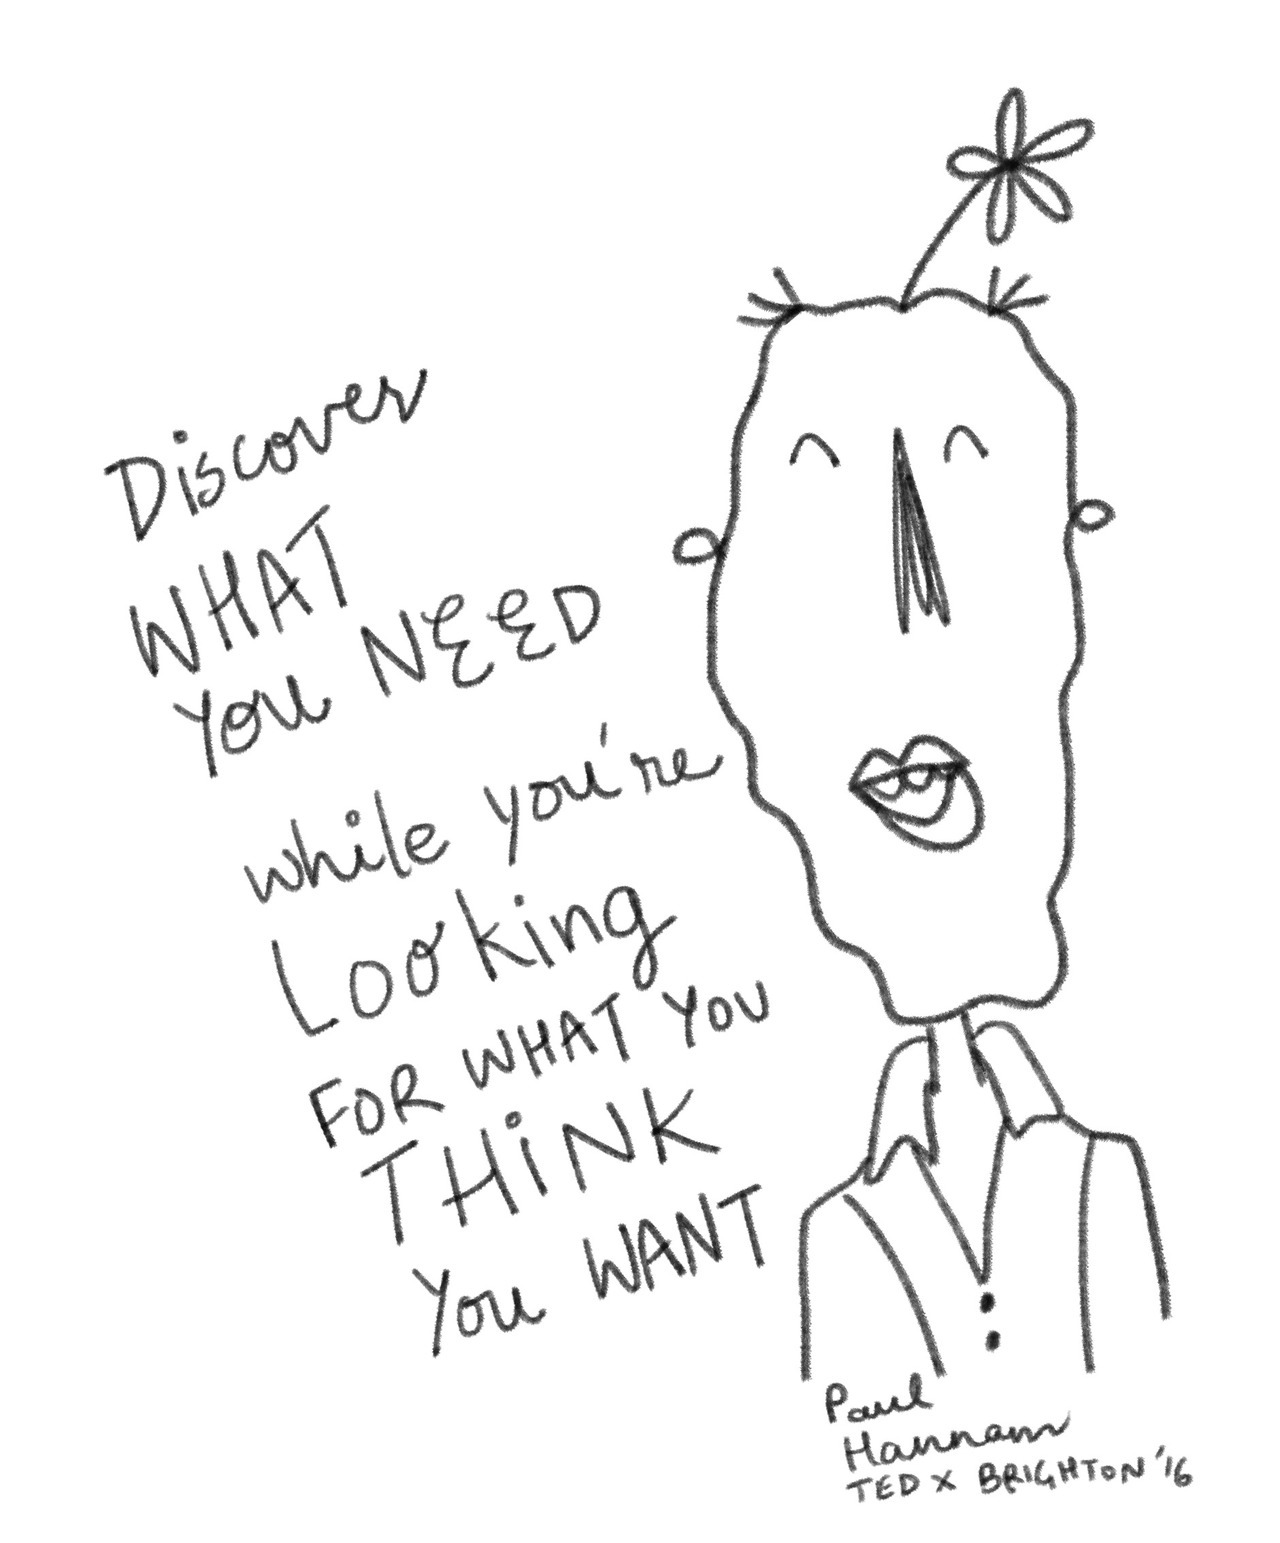 Discover
WHAT
You NEED
while you're
Looking
FOR WHAT YOU
THiNK
You WANT
Paul
Hannam
TED X BRIGHTON '16